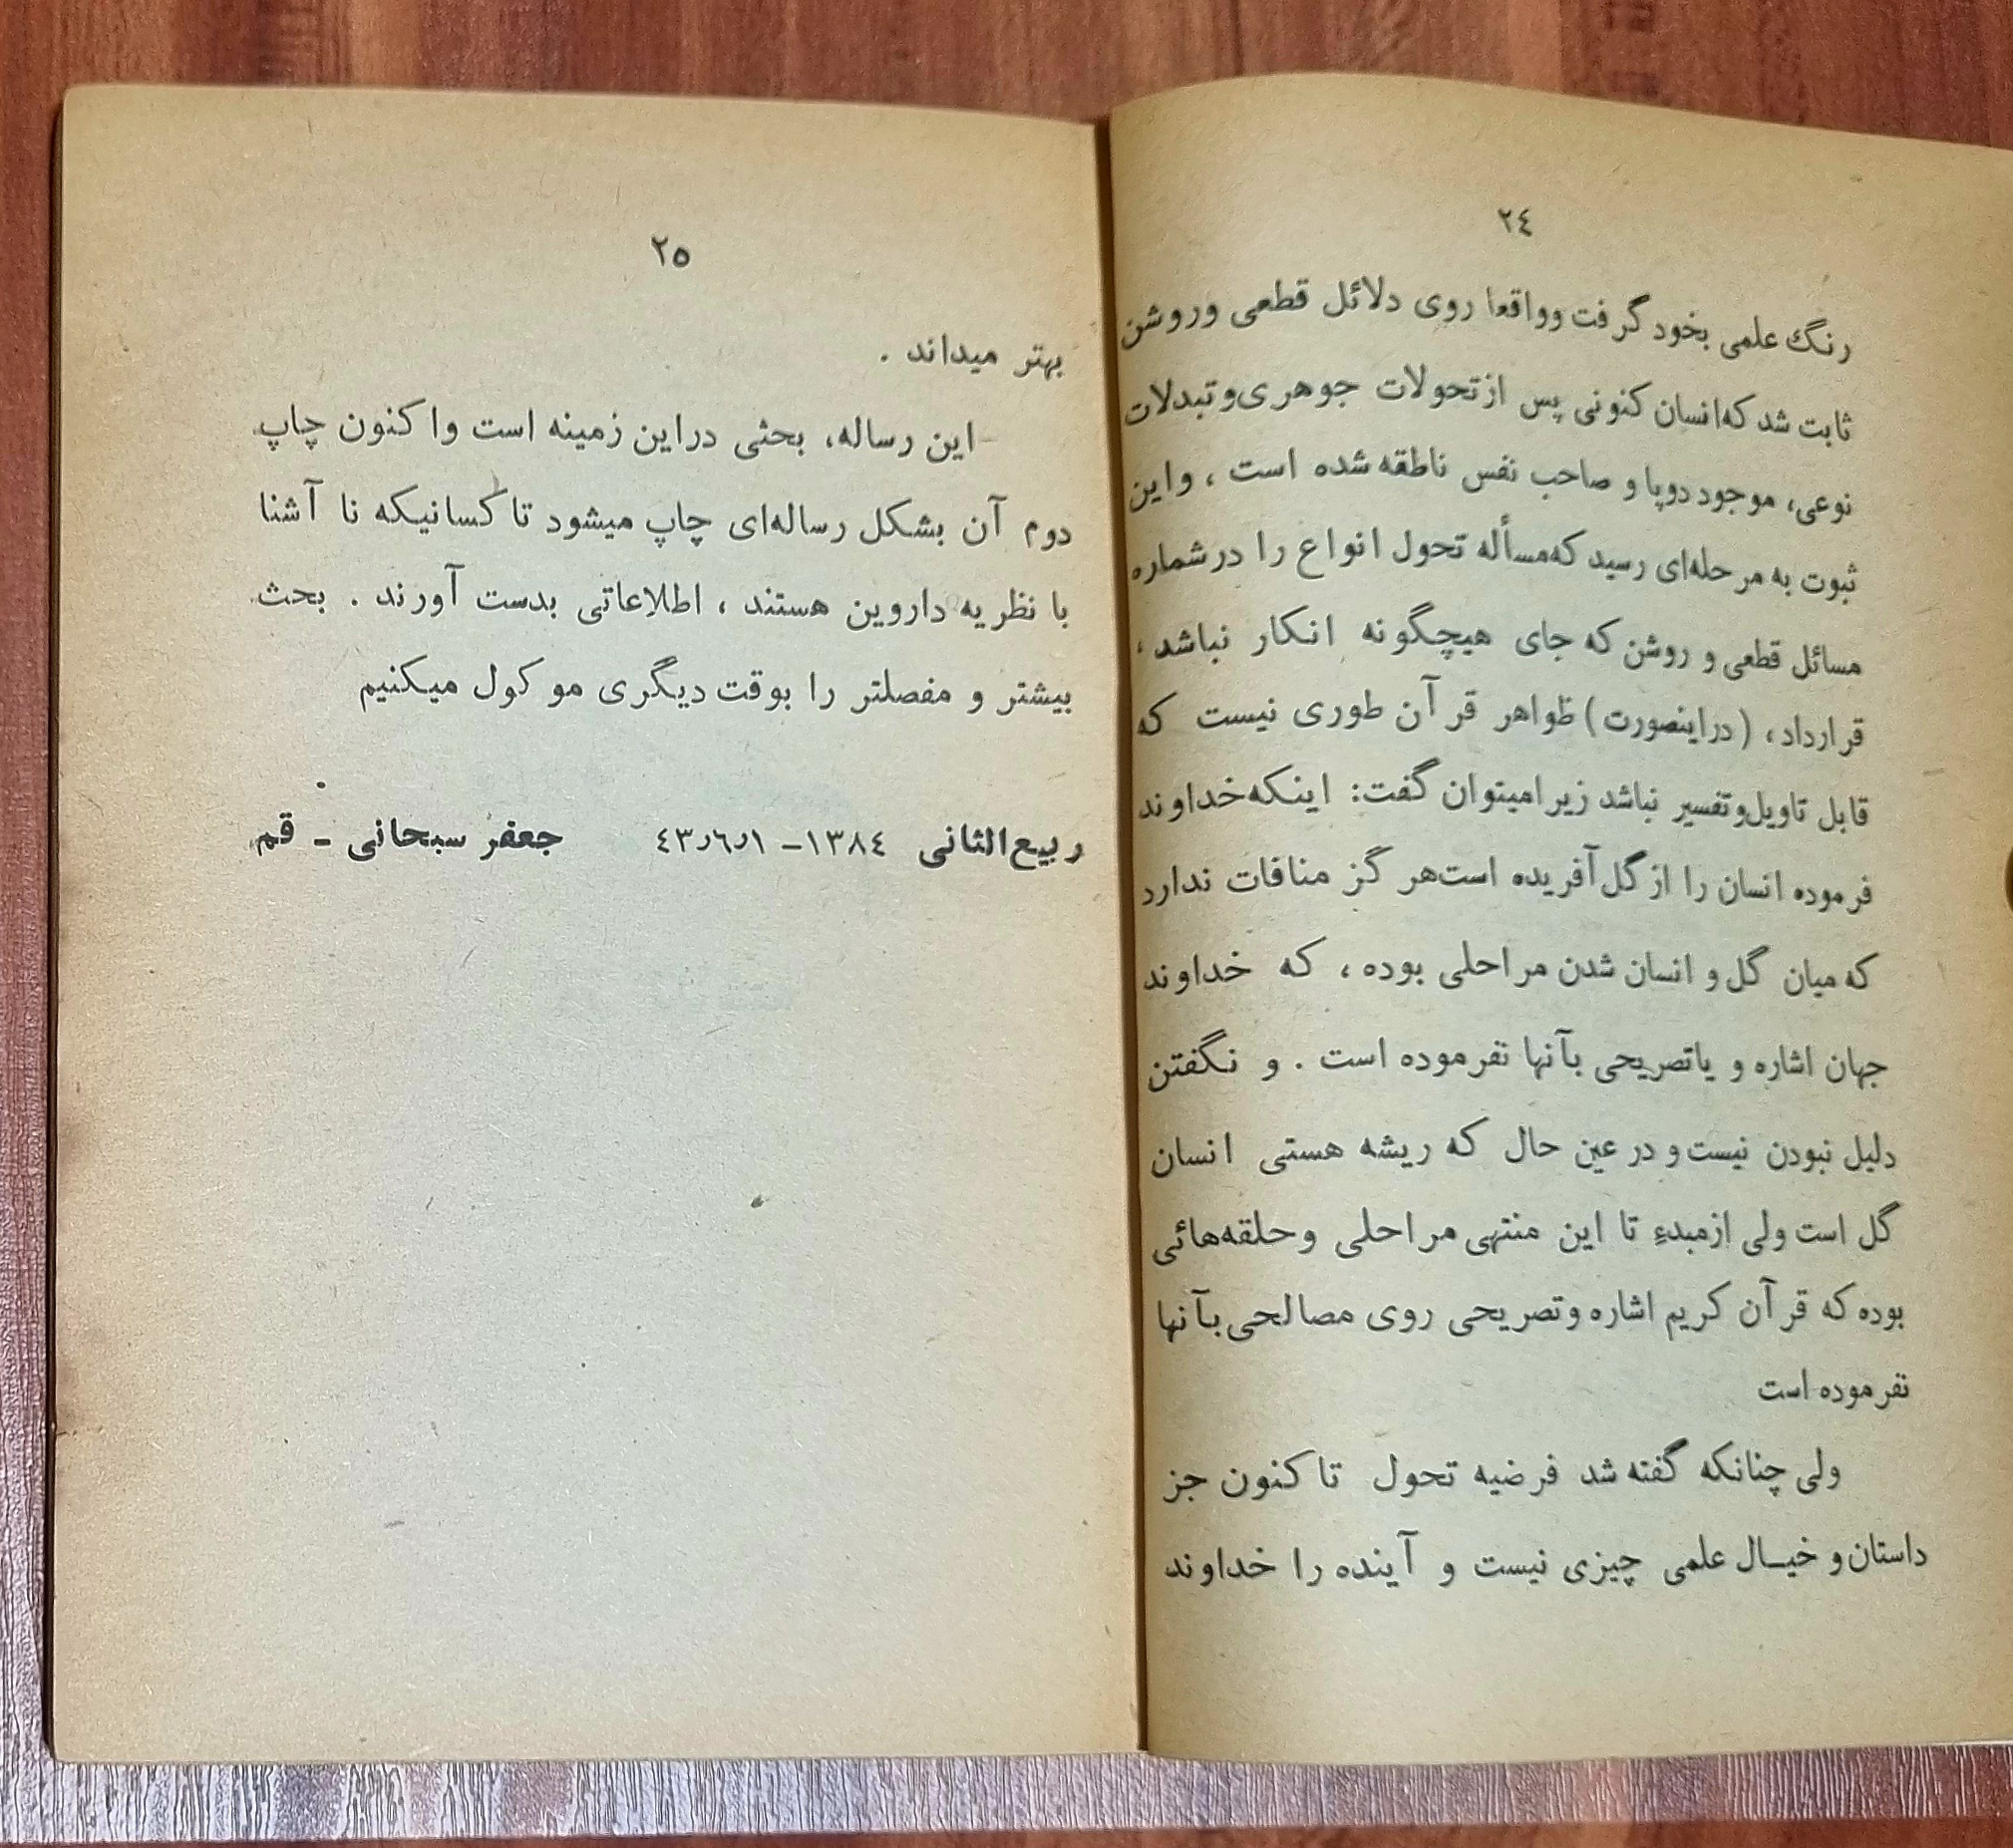 ۲٤
رنگ علمی بخود گرفت وواقعا روی دلائل قطعی وروشن
ثابت شد که‌انسان کنونی پس از تحولات جوهری‌وتبدلات
نوعی، موجود دوپا و صاحب نفس ناطقه شده است ، واین
ثبوت به مرحله‌ای رسید که‌مسأله تحول انواع را درشماره
مسائل قطعی و روشن که جای هیچگونه انکار نباشد،
قرارداد، (دراینصورت) ظواهر قرآن طوری نیست که
قابل تاویل‌وتفسیر نباشد زیرامیتوان گفت: اینکه‌خداوند
فرموده انسان را از گل‌آفریده است‌هرگز منافات ندارد
که میان گل و انسان شدن مراحلی بوده ، که خداوند
جهان اشاره و یاتصریحی بآنها نفرموده است . و نگفتن
دلیل نبودن نیست و در عین حال که ریشه هستی انسان
گل است ولی ازمبدء تا این منتهی مراحلی وحلقه‌هائی
بوده که قرآن کریم اشاره وتصریحی روی مصالحی‌بآنها
نفرموده است
ولی چنانکه گفته شد فرضیه تحول تاکنون جز
داستان و خیـال علمی چیزی نیست و آینده را خداوند
۲٥
بهتر میداند .
این رساله، بحثی دراین زمینه است واکنون چاپ
دوم آن بشکل رساله‌ای چاپ میشود تا کسانیکه نا آشنا
با نظریه داروین هستند ، اطلاعاتی بدست آورند . بحث
بیشتر و مفصلتر را بوقت دیگری موکول میکنیم
ربیع‌الثانی ۱۳۸٤ - ٤۳ر٦ر۱ جعفر سبحانی - قم